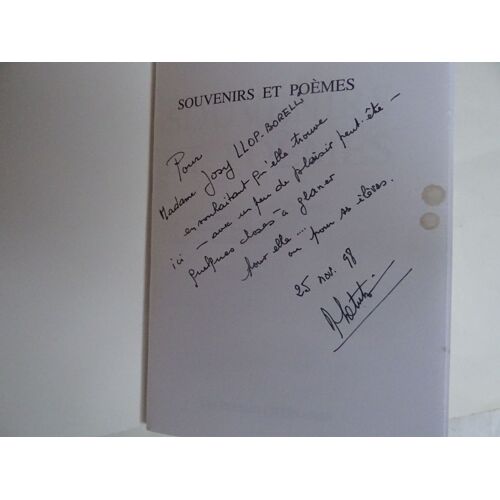 SOUVENIRS ET POÈMES
Pour
Madame Josy LLOP-BORELLI
en souhaitant qu'elle trouve
ici - avec un peu de plaisir peut-être -
quelques choses à glaner
pour elle .... ou pour ses élèves.
25 nov. 98